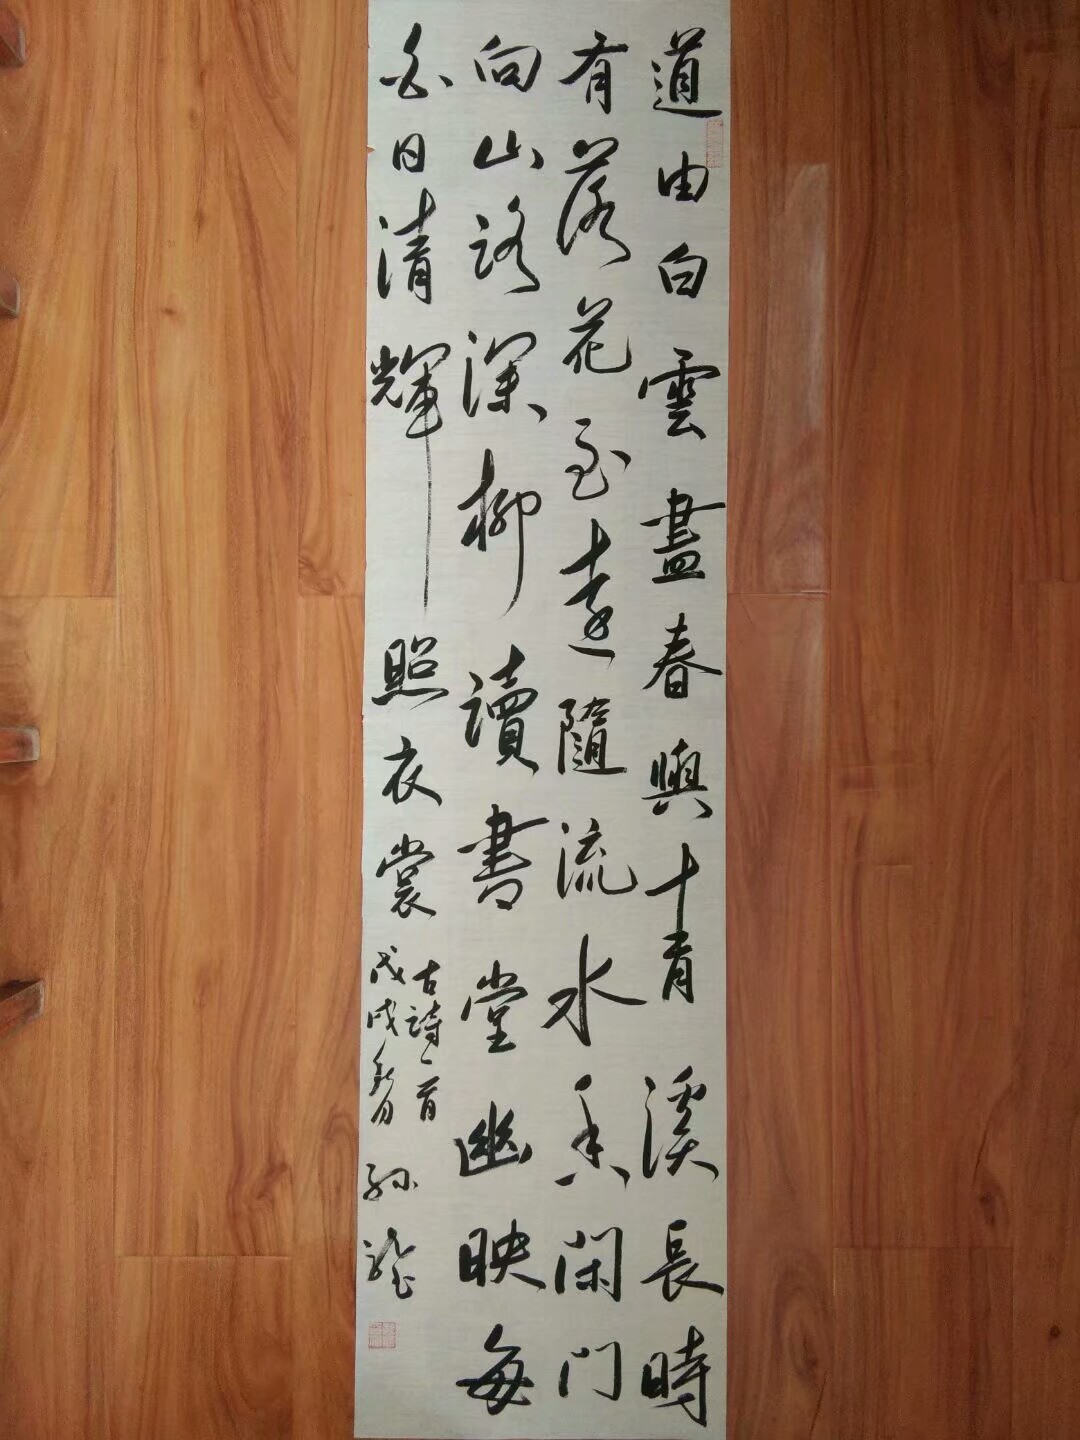 道由白雲盡春與青溪長時
有落花至遠隨流水香閑門
向山路深柳讀書堂幽映每
白日清輝照衣裳
古詩一首
戊戌 孫